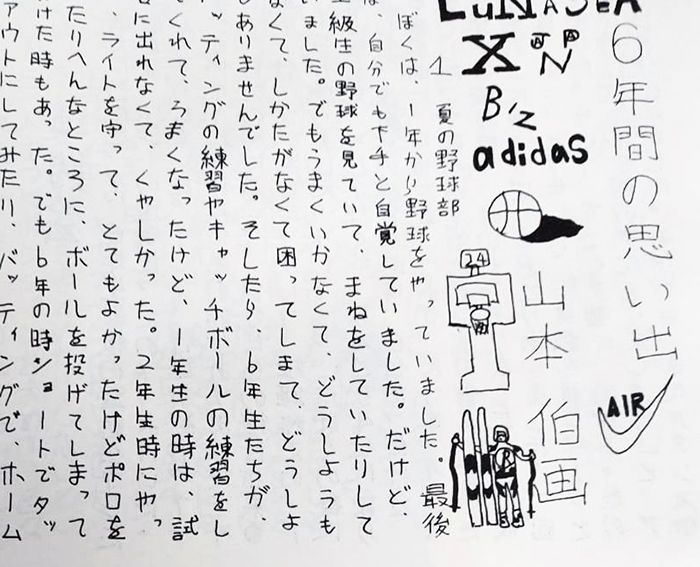 6年間の思い出
AIR
山本 伯画
LUNA SEA
X
B'z
adidas
24
1 夏の野球部
ぼくは、1年から野球をやっていました。最後
は、自分でも下手と自覚していました。だけど、
上級生の野球を見ていて、まねをしていたりして
いました。でもうまくいかなくて、どうしようも
なくて、しかたがなくて困ってしまて、どうしよ
もありませんでした。そしたら、6年生たちが、
ッティングの練習やキャッチボールの練習をし
てくれて、うまくなったけど、1年生の時は、試
に出れなくて、くやしかった。2年生時にやっ
、ライトを守って、とてもよかったけどポロを
たりへんなところに、ボールを投げてしまって
けた時もあった。でも6年の時ショートでタッ
アウトにしてみたり、バッティングで、ホーム